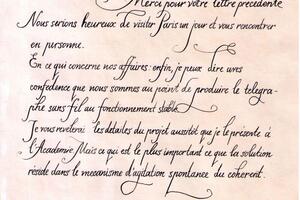 Merci pour votre lettre precedente
Nous serions heureux de visiter Paris un jour et vous rencontrer
en personne.
En ce qui concerne nos affaires: enfin, je peux dire avec
confidence que nous sommes au point de produire le telegra-
phe sans fil au fonctionnement stable.
Je vous revelerai les details du projet aussitôt que je le présente à
l'Academie. Mais ce qui est le plus important ce que la solution
reside dans le mecanisme d'agitation spontanee du coherent.